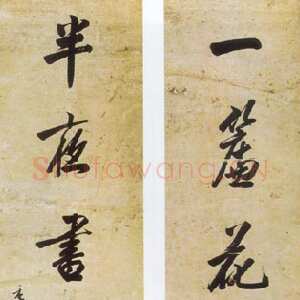 一簾花
半夜書
ShufawangCN